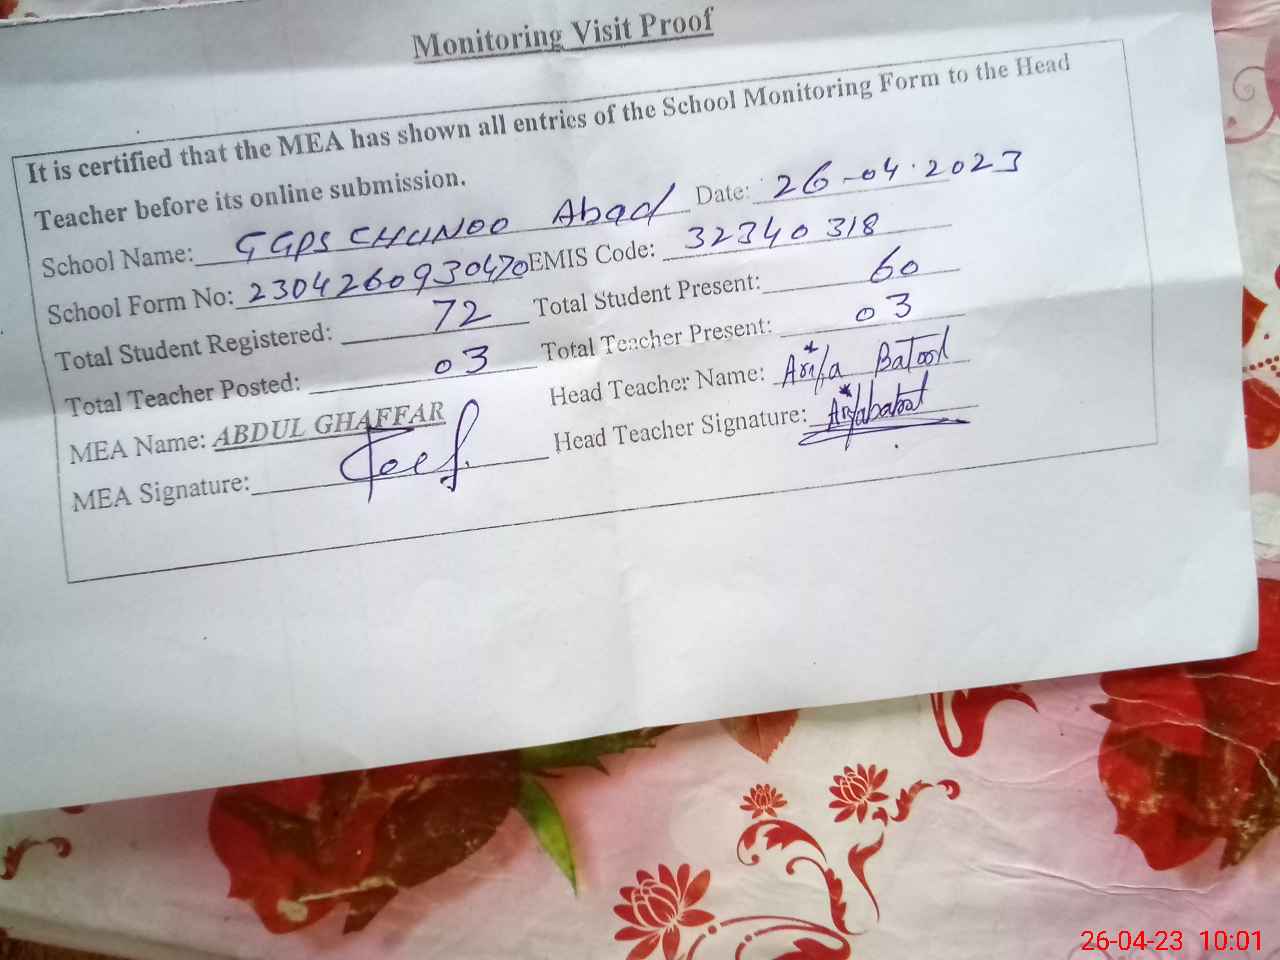 Monitoring Visit Proof
It is certified that the MEA has shown all entries of the School Monitoring Form to the Head
Teacher before its online submission.
School Name: GGPS CHUNOO Abad Date: 26-04.2023
School Form No: 2304260930470 EMIS Code: 32340318
Total Student Registered: 72 Total Student Present: 60
Total Teacher Posted: 03 Total Teacher Present: 03
MEA Name: ABDUL GHAFFAR Head Teacher Name: Arifa Batool
MEA Signature: Head Teacher Signature:
26-04-23 10:01